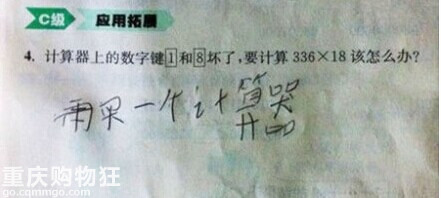 C级 应用拓展
4. 计算器上的数字键1和8坏了,要计算336×18该怎么办?
再买一个计算器
重庆购物狂
go.cqmmgo.com